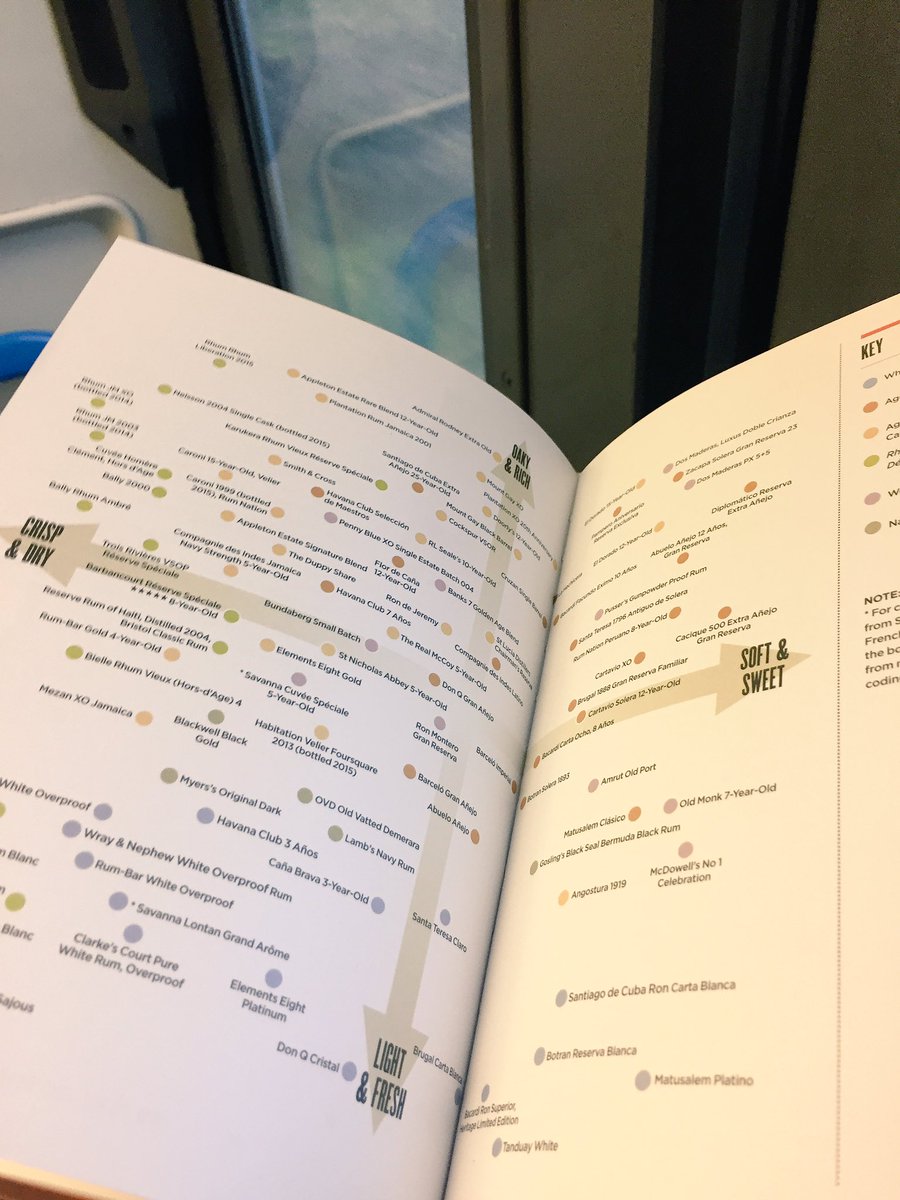 Rhum Rhum
Liberation 2015
Appleton Estate Rare Blend 12-Year-Old
Plantation Rum Jamaica 2001
Admiral Rodney Extra Old
OAKY
& RICH
Rhum JM XO
(bottled 2014)
Neisson 2004 Single Cask (bottled 2015)
Rhum JM 2003
(bottled 2014)
Karukera Rhum Vieux Réserve Spéciale
Santiago de Cuba Extra
Añejo 25-Year-Old
Mount Gay XO
Plantation XO 20th Anniversary
Cuvée Homère
Clément, Hors d'Age
Caroni 15-Year-Old, Velier
Smith & Cross
Bally 2000
Caroni 1999 (bottled
2015), Rum Nation
Havana Club Selección
Maestros
Mount Gay Black Barrel
Doorly's 12-Year-Old
Cockspur VSOR
Bally Rhum Ambré
Appleton Estate Signature Blend
Penny Blue XO Single Estate Batch 004
RL Seale's 10-Year-Old
CRISP
& DRY
Trois Rivières VSOP
Réserve Spéciale
Compagnie des Indes Jamaica
Navy Strength 5-Year-Old
The Duppy Share
Flor de Caña
12-Year-Old
Banks 7 Golden Age Blend
Barbancourt Réserve Spéciale
★★★★★ 8-Year-Old
Havana Club 7
Años
Ron de Jeremy
Reserve Rum of Haiti, Distilled 2004,
Bristol Classic Rum
Bundaberg Small Batch
The Real McCoy 5-Year-Old
Compagnie des Indes Latino
Rum-Bar Gold 4-Year-Old
Elements Eight Gold
St Nicholas Abbey 5-Year-Old
Don Q Gran Añejo
Bielle Rhum Vieux (Hors-d'Age) 4
* Savanna Cuvée Spéciale
5-Year-Old
Mezan XO Jamaica
Blackwell Black
Gold
Habitation Velier Foursquare
2013 (bottled 2015)
Ron Montero
Gran Reserva
Barceló Imperial
Barceló Gran Añejo
Myers's Original Dark
OVD Old Vatted Demerara
Abuelo Añejo
White Overproof
Havana Club 3 Años
Lamb's Navy Rum
Wray & Nephew White Overproof Rum
Caña Brava 3-Year-Old
Blanc
Rum-Bar White Overproof
Santa Teresa Claro
* Savanna Lontan Grand Arôme
Blanc
Clarke's Court Pure
White Rum, Overproof
Elements Eight
Platinum
Sajous
Don Q Cristal
LIGHT
& FRESH
Brugal Carta Blanca
Dos Maderas, Luxus Doble Crianza
Zacapa Solera Gran Reserva 23
Dos Maderas PX 5+5
El Dorado 15-Year-Old
Pampero Aniversario
Reserva Exclusiva
Diplomático Reserva
Extra Añejo
El Dorado 12-Year-Old
Abuelo Añejo 12 Años,
Gran Reserva
Bacardí Facundo Eximo 10 Años
Pusser's Gunpowder Proof Rum
Santa Teresa 1796 Antiguo de Solera
Rum Nation Peruano 8-Year-Old
Cacique 500 Extra Añejo
Gran Reserva
Cartavio XO
SOFT &
SWEET
Brugal 1888 Gran Reserva Familiar
Cartavio Solera 12-Year-Old
Bacardí Carta Ocho, 8 Años
Botran Solera 1893
Amrut Old Port
Matusalem Clásico
Old Monk 7-Year-Old
Gosling's Black Seal Bermuda Black Rum
McDowell's No 1
Celebration
Angostura 1919
Santiago de Cuba Ron Carta Blanca
Botran Reserva Blanca
Matusalem Platino
Bacardí Ron Superior,
Heritage Limited Edition
Tanduay White
KEY
NOTE:
* For
from
French
the
from
coding